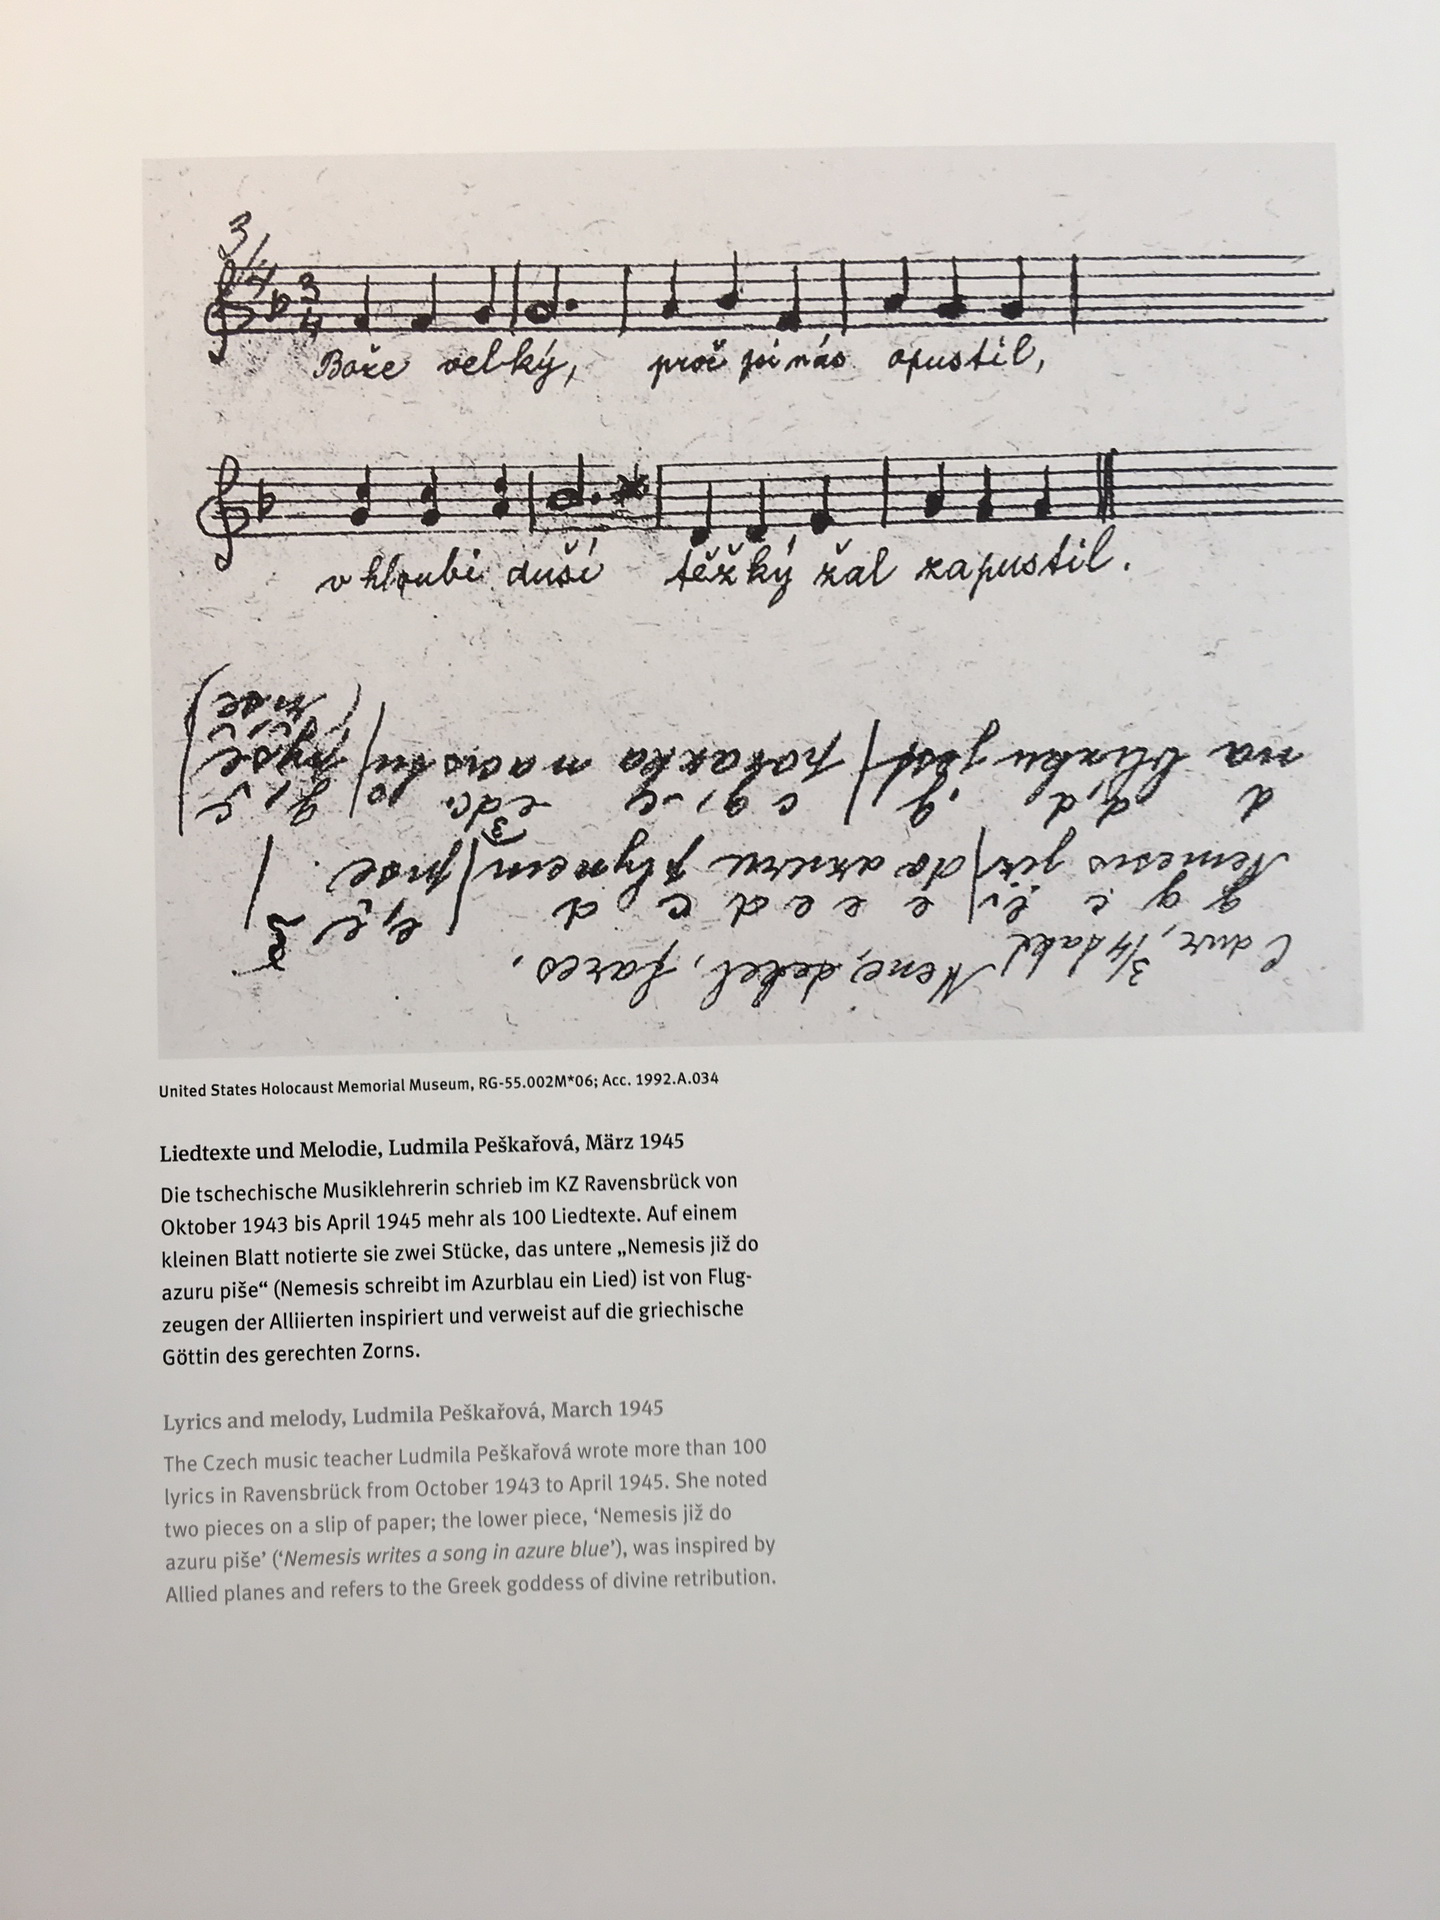 3/4
3
4
Bože velký, proč jsi nás opustil,
v hloubi duší těžký žal zapustil.
C dur, 3/4 takt
g g c e, e e e d c d
Nemesis již do azuru
na blízku jest
United States Holocaust Memorial Museum, RG-55.002M*06; Acc. 1992.A.034
Liedtexte und Melodie, Ludmila Peškařová, März 1945
Die tschechische Musiklehrerin schrieb im KZ Ravensbrück von
Oktober 1943 bis April 1945 mehr als 100 Liedtexte. Auf einem
kleinen Blatt notierte sie zwei Stücke, das untere „Nemesis již do
azuru piše“ (Nemesis schreibt im Azurblau ein Lied) ist von Flug-
zeugen der Alliierten inspiriert und verweist auf die griechische
Göttin des gerechten Zorns.
Lyrics and melody, Ludmila Peškařová, March 1945
The Czech music teacher Ludmila Peškařová wrote more than 100
lyrics in Ravensbrück from October 1943 to April 1945. She noted
two pieces on a slip of paper; the lower piece, ‘Nemesis již do
azuru piše’ (‘Nemesis writes a song in azure blue’), was inspired by
Allied planes and refers to the Greek goddess of divine retribution.